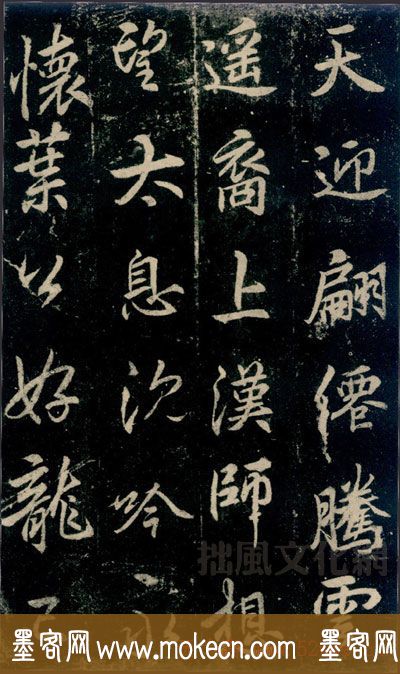 天迎翩僊騰雲
遥裔上漢師想
望太息沉吟永
懷葉公好龍
拙風文化網
墨客网 www.mokecn.com 墨客网